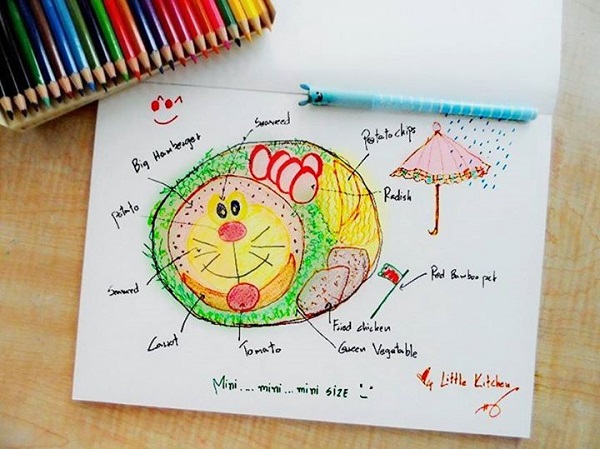 Seaweed
Big Hamberger
Potato chips
Potato
Radish
Seaweed
Red Bamboo pck
Carrot
Tomato
Fried chicken
Green Vegetable
Mini.... mini... mini SIZE
Little Kitchen